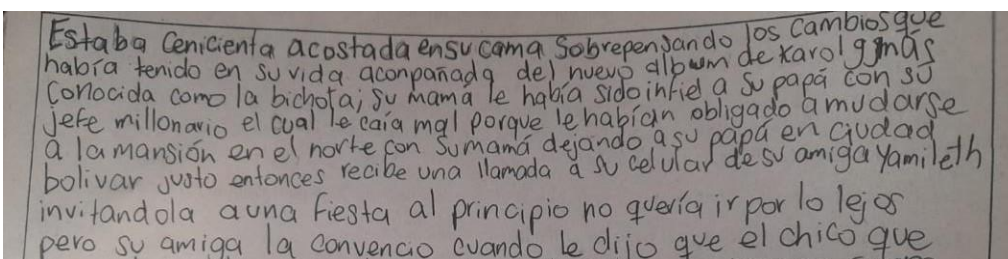 Estaba Cenicienta acostada en su cama Sobrepensando los cambios que
había tenido en su vida aconpañada del nuevo album de Karol g más
conocida como la bichota; su mamá le había sido infiel a su papá con su
jefe millonario el cual le caía mal porque le habían obligado a mudarse
a la mansión en el norte con su mamá dejando a su papá en ciudad
bolivar justo entonces recibe una llamada a su celular de su amiga Yamileth
invitandola a una fiesta al principio no quería ir por lo lejos
pero su amiga la convencio cuando le dijo que el chico que